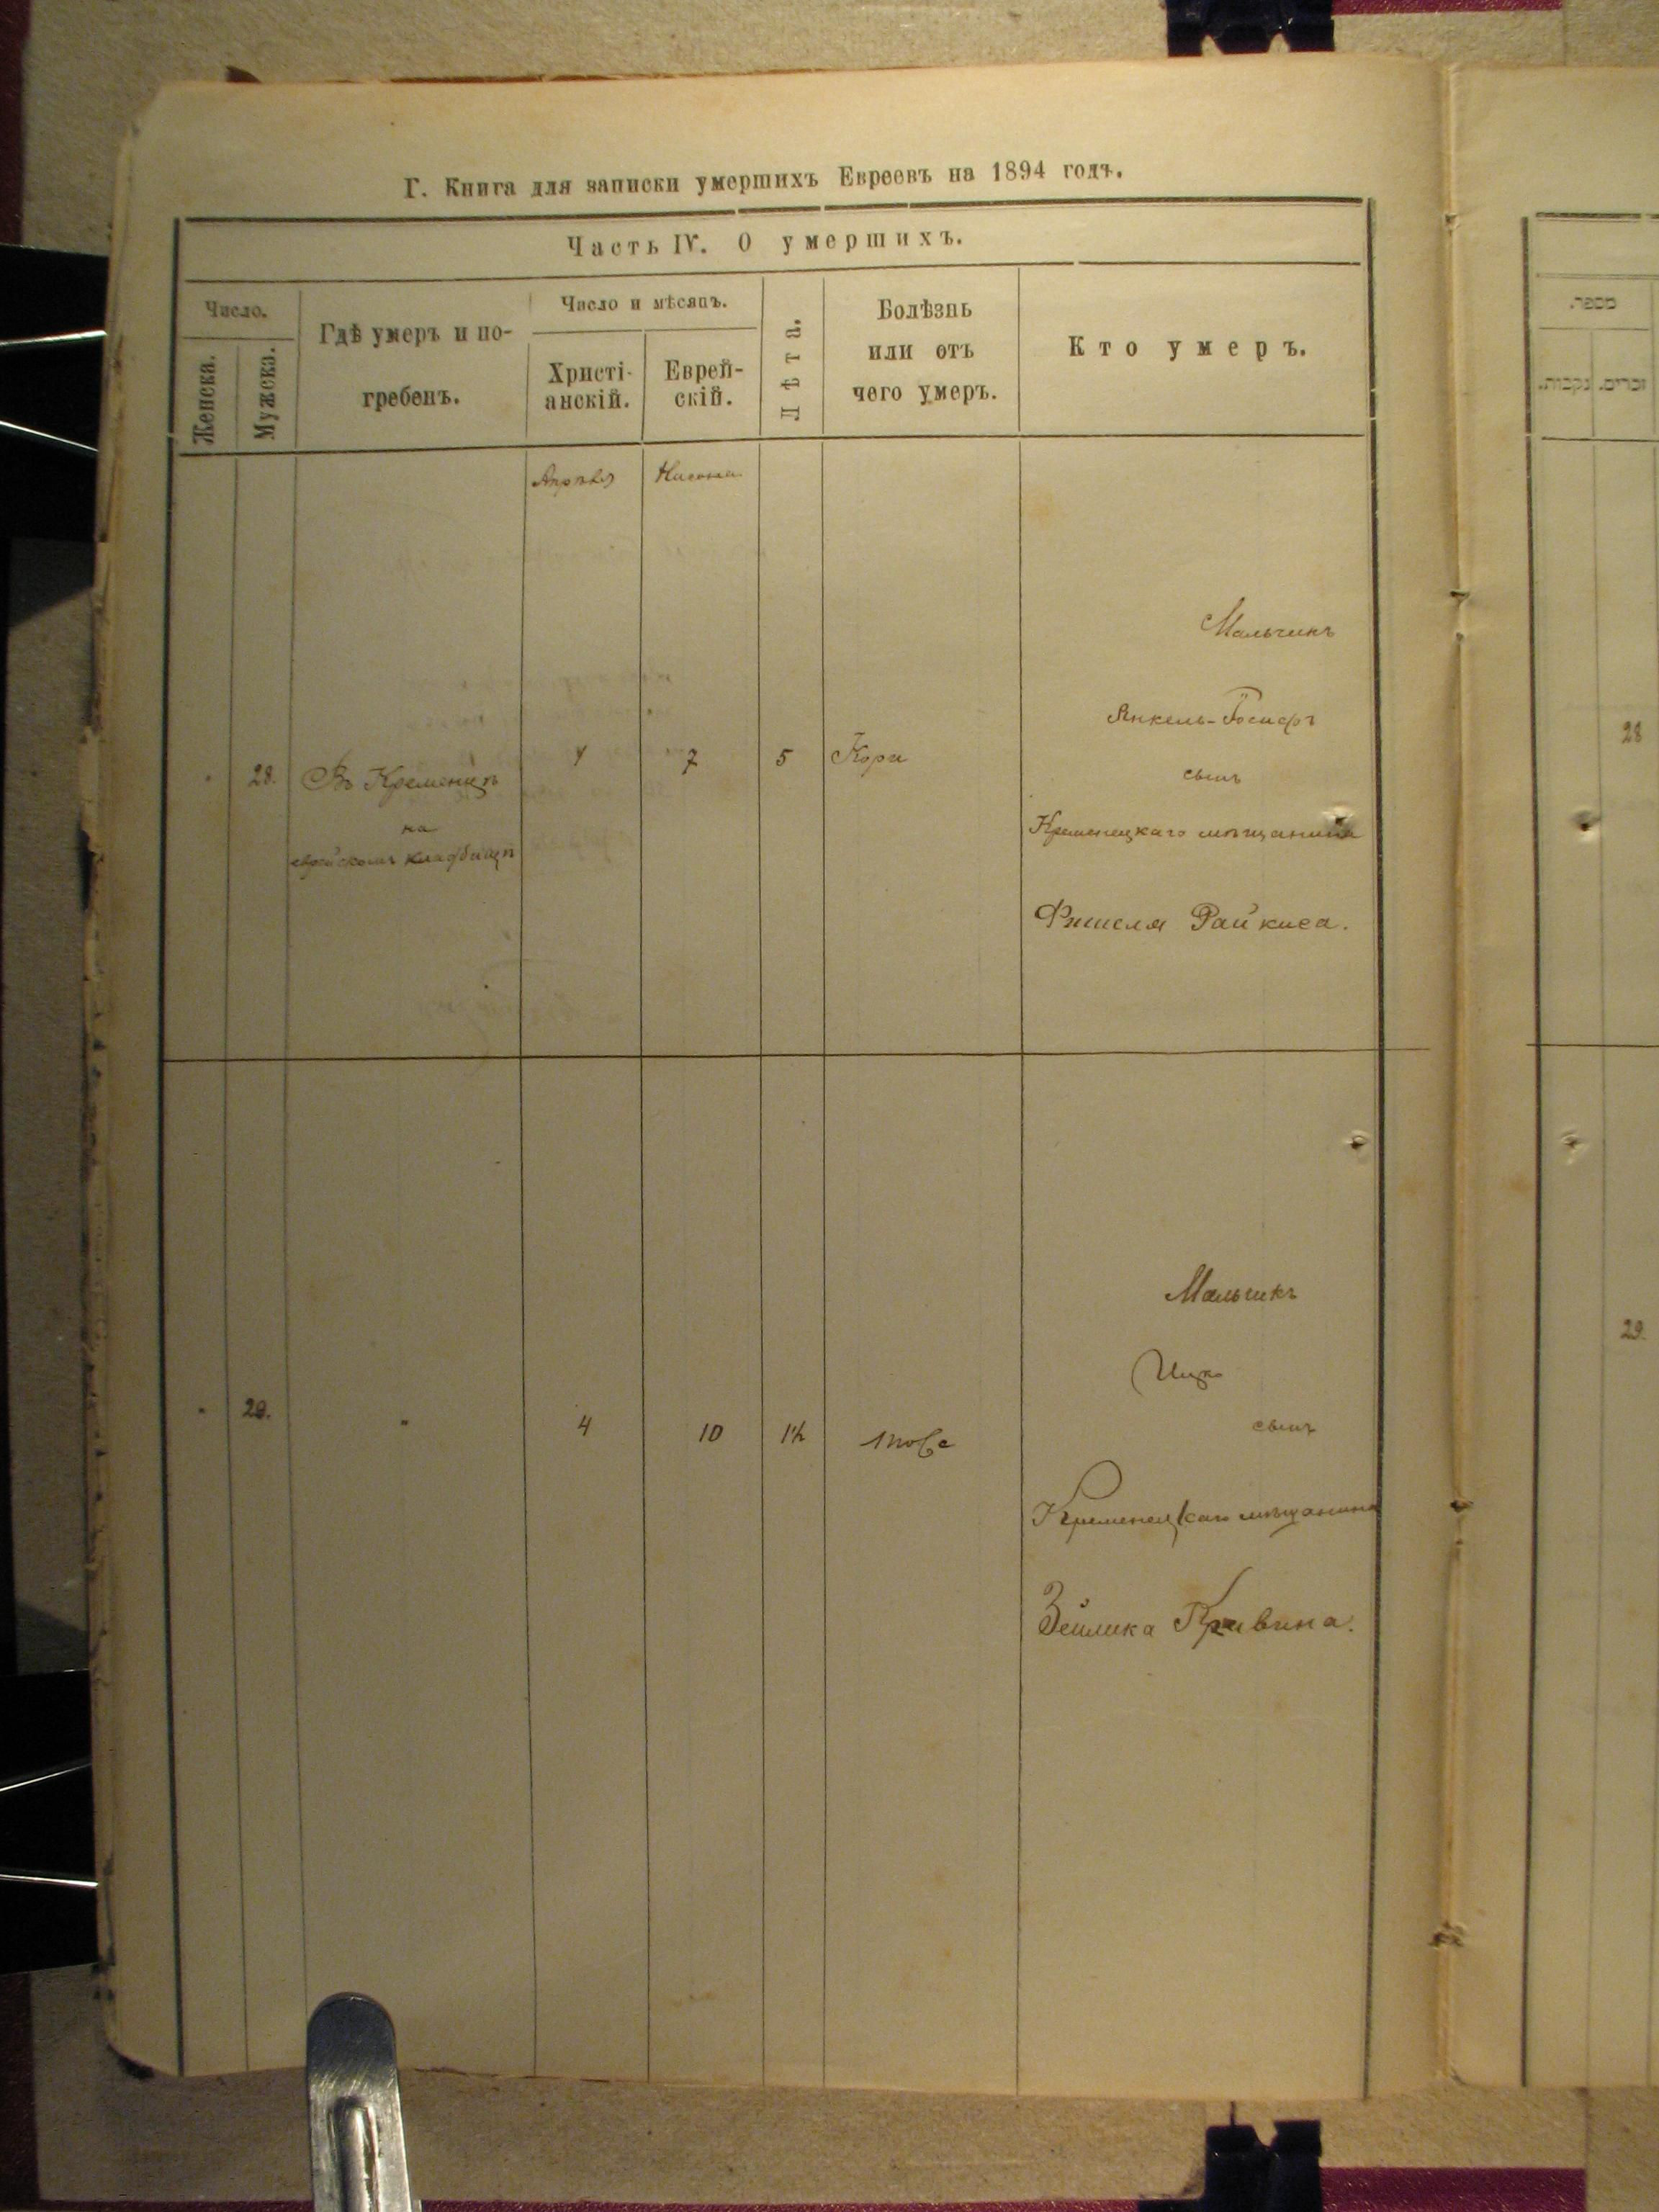 Г. Книга для записки умершихъ Евреевъ на 1894 годъ.
Часть IV. О умершихъ.
Число.
Женска.
Мужска.
Гдѣ умеръ и по-
гребенъ.
Число и мѣсяцъ.
Христі-
анскій.
Еврей-
скій.
Лѣта.
Болѣзнь
или отъ
чего умеръ.
Кто умеръ.
Апрѣля
Нисона
28.
Въ Кременцѣ
на
еврейскомъ кладбищѣ
7
5
Кори
Мальчикъ
Янкель-Іосифъ
сынъ
Кременецкаго мѣщанина
Фишеля Райкиса.
29.
"
4
10
1½
тоже
Мальчикъ
Ицко
сынъ
Кременецкаго мѣщанина
Зейлика Кривина.
מספר.
זכרים.
נקבות.
28
29.